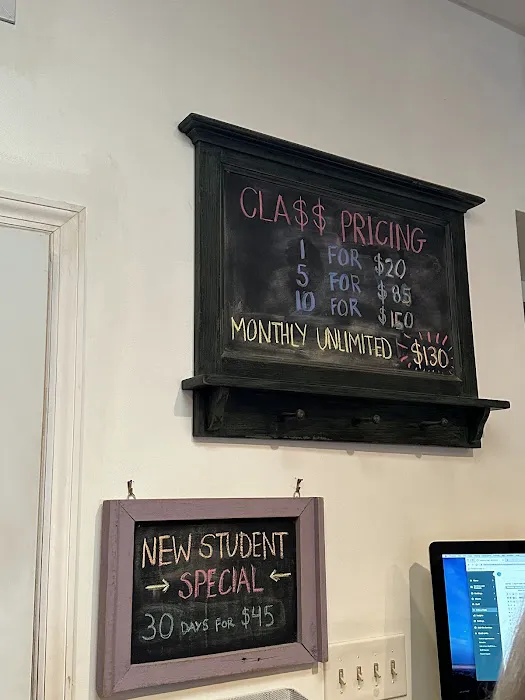 CLA$$ PRICING
1 FOR $20
5 FOR $85
10 FOR $150
MONTHLY UNLIMITED $130
NEW STUDENT
SPECIAL
30 DAYS FOR $45